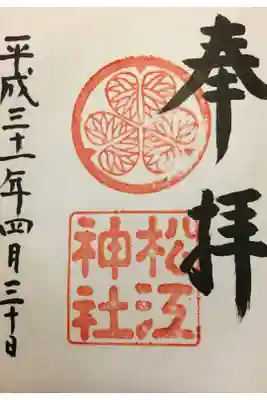 奉拝
松江
神社
平成三十一年四月三十日